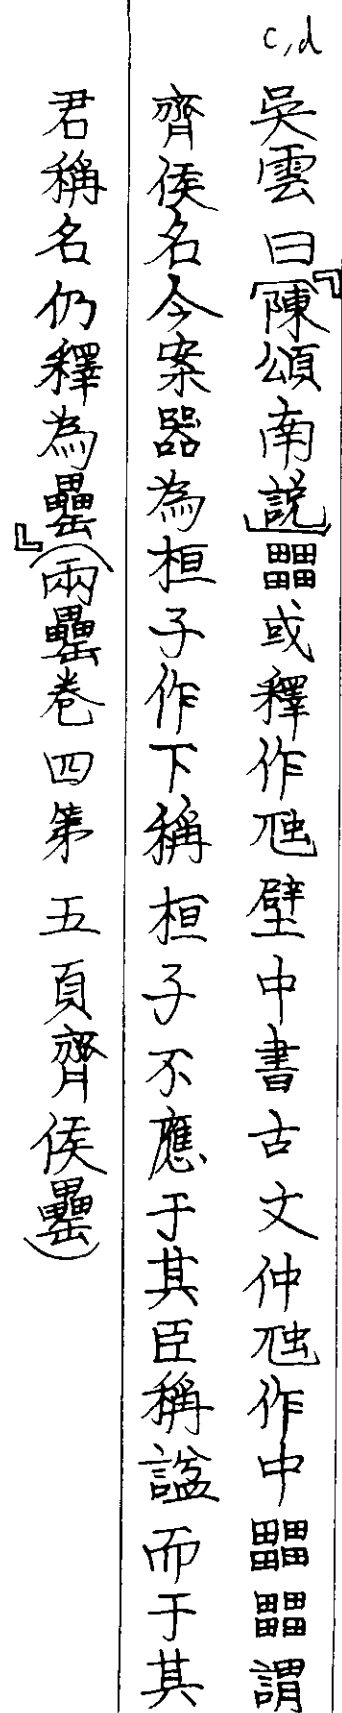 c,d
吳雲曰『(陳頌南說)或釋作虺壁中書古文仲虺作中謂
齊侯名今案器為桓子作下稱桓子不應于其臣稱諡而于其
君稱名仍釋為罍』(兩罍卷四第五頁齊侯罍)